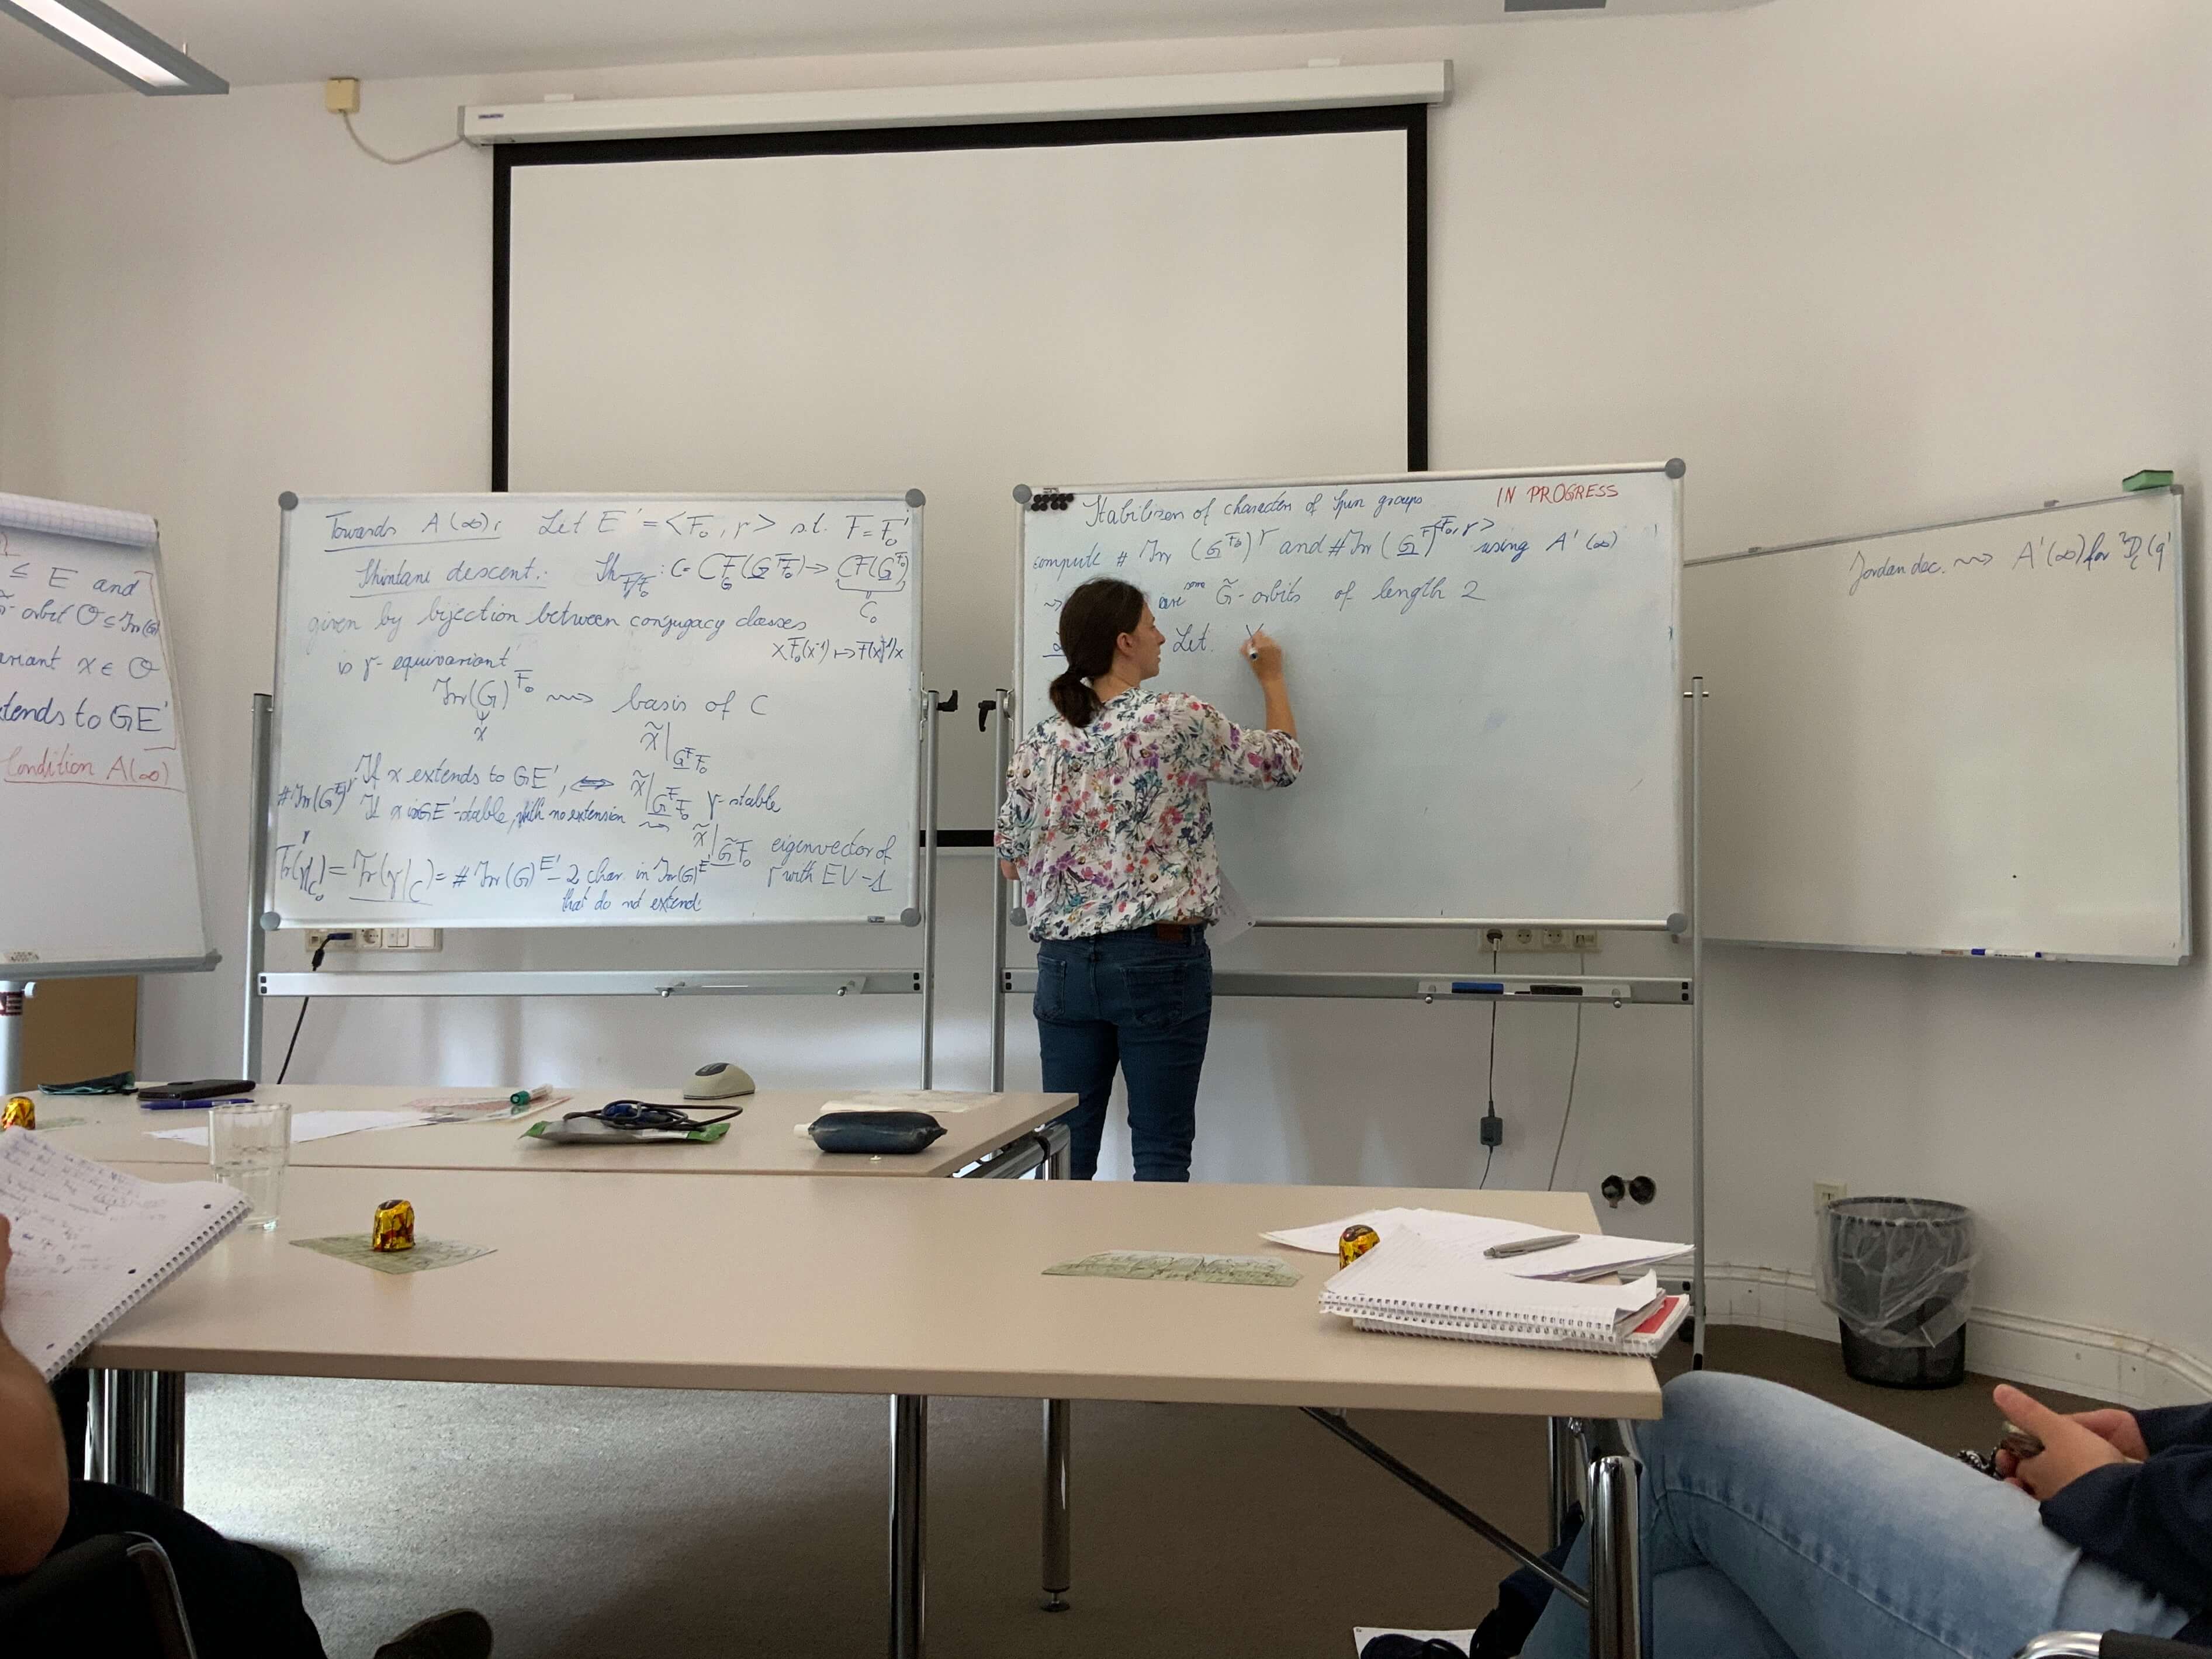 ≤ E and
orbit O ⊆ Irr(G)
variant χ ∈ O
extends to GE'
Condition A(∞)
Towards A(∞): Let E' = <F₀, γ> s.t. F = F₀'
Shintani descent: Sh_{F/F₀} : C = CF_G(G F₀) → CF(G^{F₀})
C₀
given by bijection between conjugacy classes
x F₀(x⁻¹) ↦ F(x)⁻¹x
is γ-equivariant
Irr(G)^{F₀} ⇝ basis of C
χ
χ̃|_{G^F F₀}
If χ extends to GE', ⟺ χ̃|_{G^F F₀} γ-stable
#Irr(G^{F₀})^γ
If χ is GE'-stable, with no extension ⇝ χ̃|_{G^F F₀} eigenvector of
γ with EV -1
Tr(γ|_{C₀}) = Tr(γ|_C) = # Irr(G)^{E'} - 2 char. in Irr(G)^{E'}
that do not extend
Stabilizers of characters of Spin groups IN PROGRESS
compute # Irr (G^{F₀})^γ and # Irr (G^F)^{<F₀, γ>} using A'(∞)
⇝ are some G̃-orbits of length 2
Let
Jordan dec. ⇝ A'(∞) for ²D_l(q)